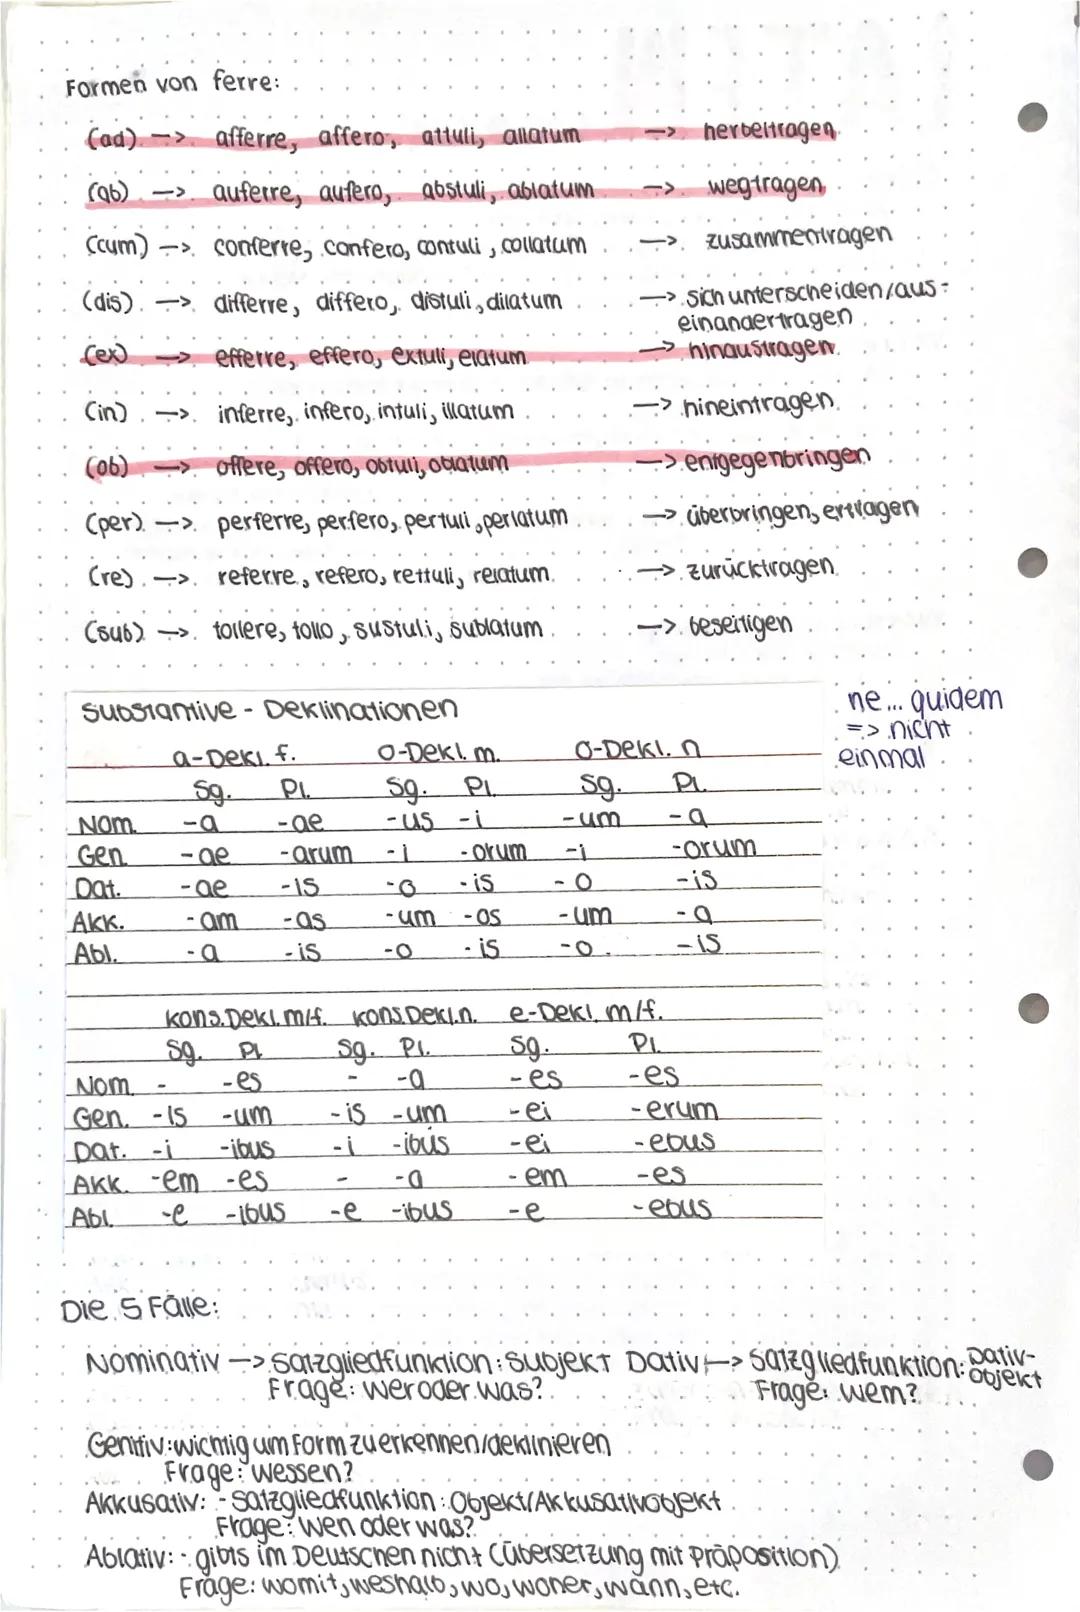 Formen von ferre:
(ad) —> afferre, affero, attuli, allatum —> herbeitragen
(ab) —> auferre, aufero, abstuli, ablatum —> wegtragen
(cum) —> conferre, confero, contuli, collatum —> zusammentragen
(dis) —> differre, differo, distuli, dilatum —> sich unterscheiden/aus-
einandertragen
(ex) —> efferre, effero, extuli, elatum —> hinaustragen
(in) —> inferre, infero, intuli, illatum —> hineintragen
(ob) —> offere, offero, obtuli, oblatum —> entgegenbringen
(per) —> perferre, perfero, pertuli, perlatum —> überbringen, ertragen
(re) —> referre, refero, rettuli, relatum —> zurücktragen
(sub) —> tollere, tollo, sustuli, sublatum —> beseitigen
ne... quidem
=> nicht
einmal
Substantive - Deklinationen
a-Dekl. f. o-Dekl. m. o-Dekl. n
Sg. Pl. Sg. Pl. Sg. Pl.
Nom. -a -ae -us -i -um -a
Gen -ae -arum -i -orum -i -orum
Dat. -ae -is -o -is -o -is
Akk. -am -as -um -os -um -a
Abl. -a -is -o -is -o -is
kons. Dekl. m/f. kons. Dekl. n. e-Dekl. m/f.
Sg. Pl Sg. Pl. Sg. Pl.
Nom - -es - -a -es -es
Gen. -is -um -is -um -ei -erum
Dat. -i -ibus -i -ibus -ei -ebus
Akk. -em -es - -a -em -es
Abl. -e -ibus -e -ibus -e -ebus
Die 5 Fälle:
Nominativ —> Satzgliedfunktion: Subjekt Dativ —> Satzgliedfunktion: Dativ-
objekt
Frage: wer oder was? Frage: wem?
Genitiv: wichtig um Form zu erkennen/deklinieren
Frage: wessen?
Akkusativ: - Satzgliedfunktion: Objekt/Akkusativobjekt
Frage: wen oder was?
Ablativ: - gibts im Deutschen nicht (Übersetzung mit Präposition)
Frage: womit, weshalb, wo, woher, wann, etc.